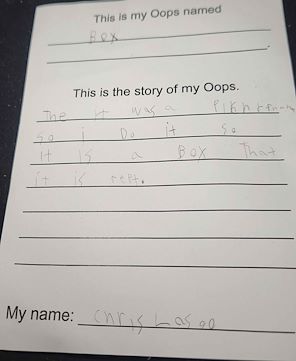 This is my Oops named
Box
This is the story of my Oops.
The it was a
so i Do it so
it is a Box That
it is
My name: chris